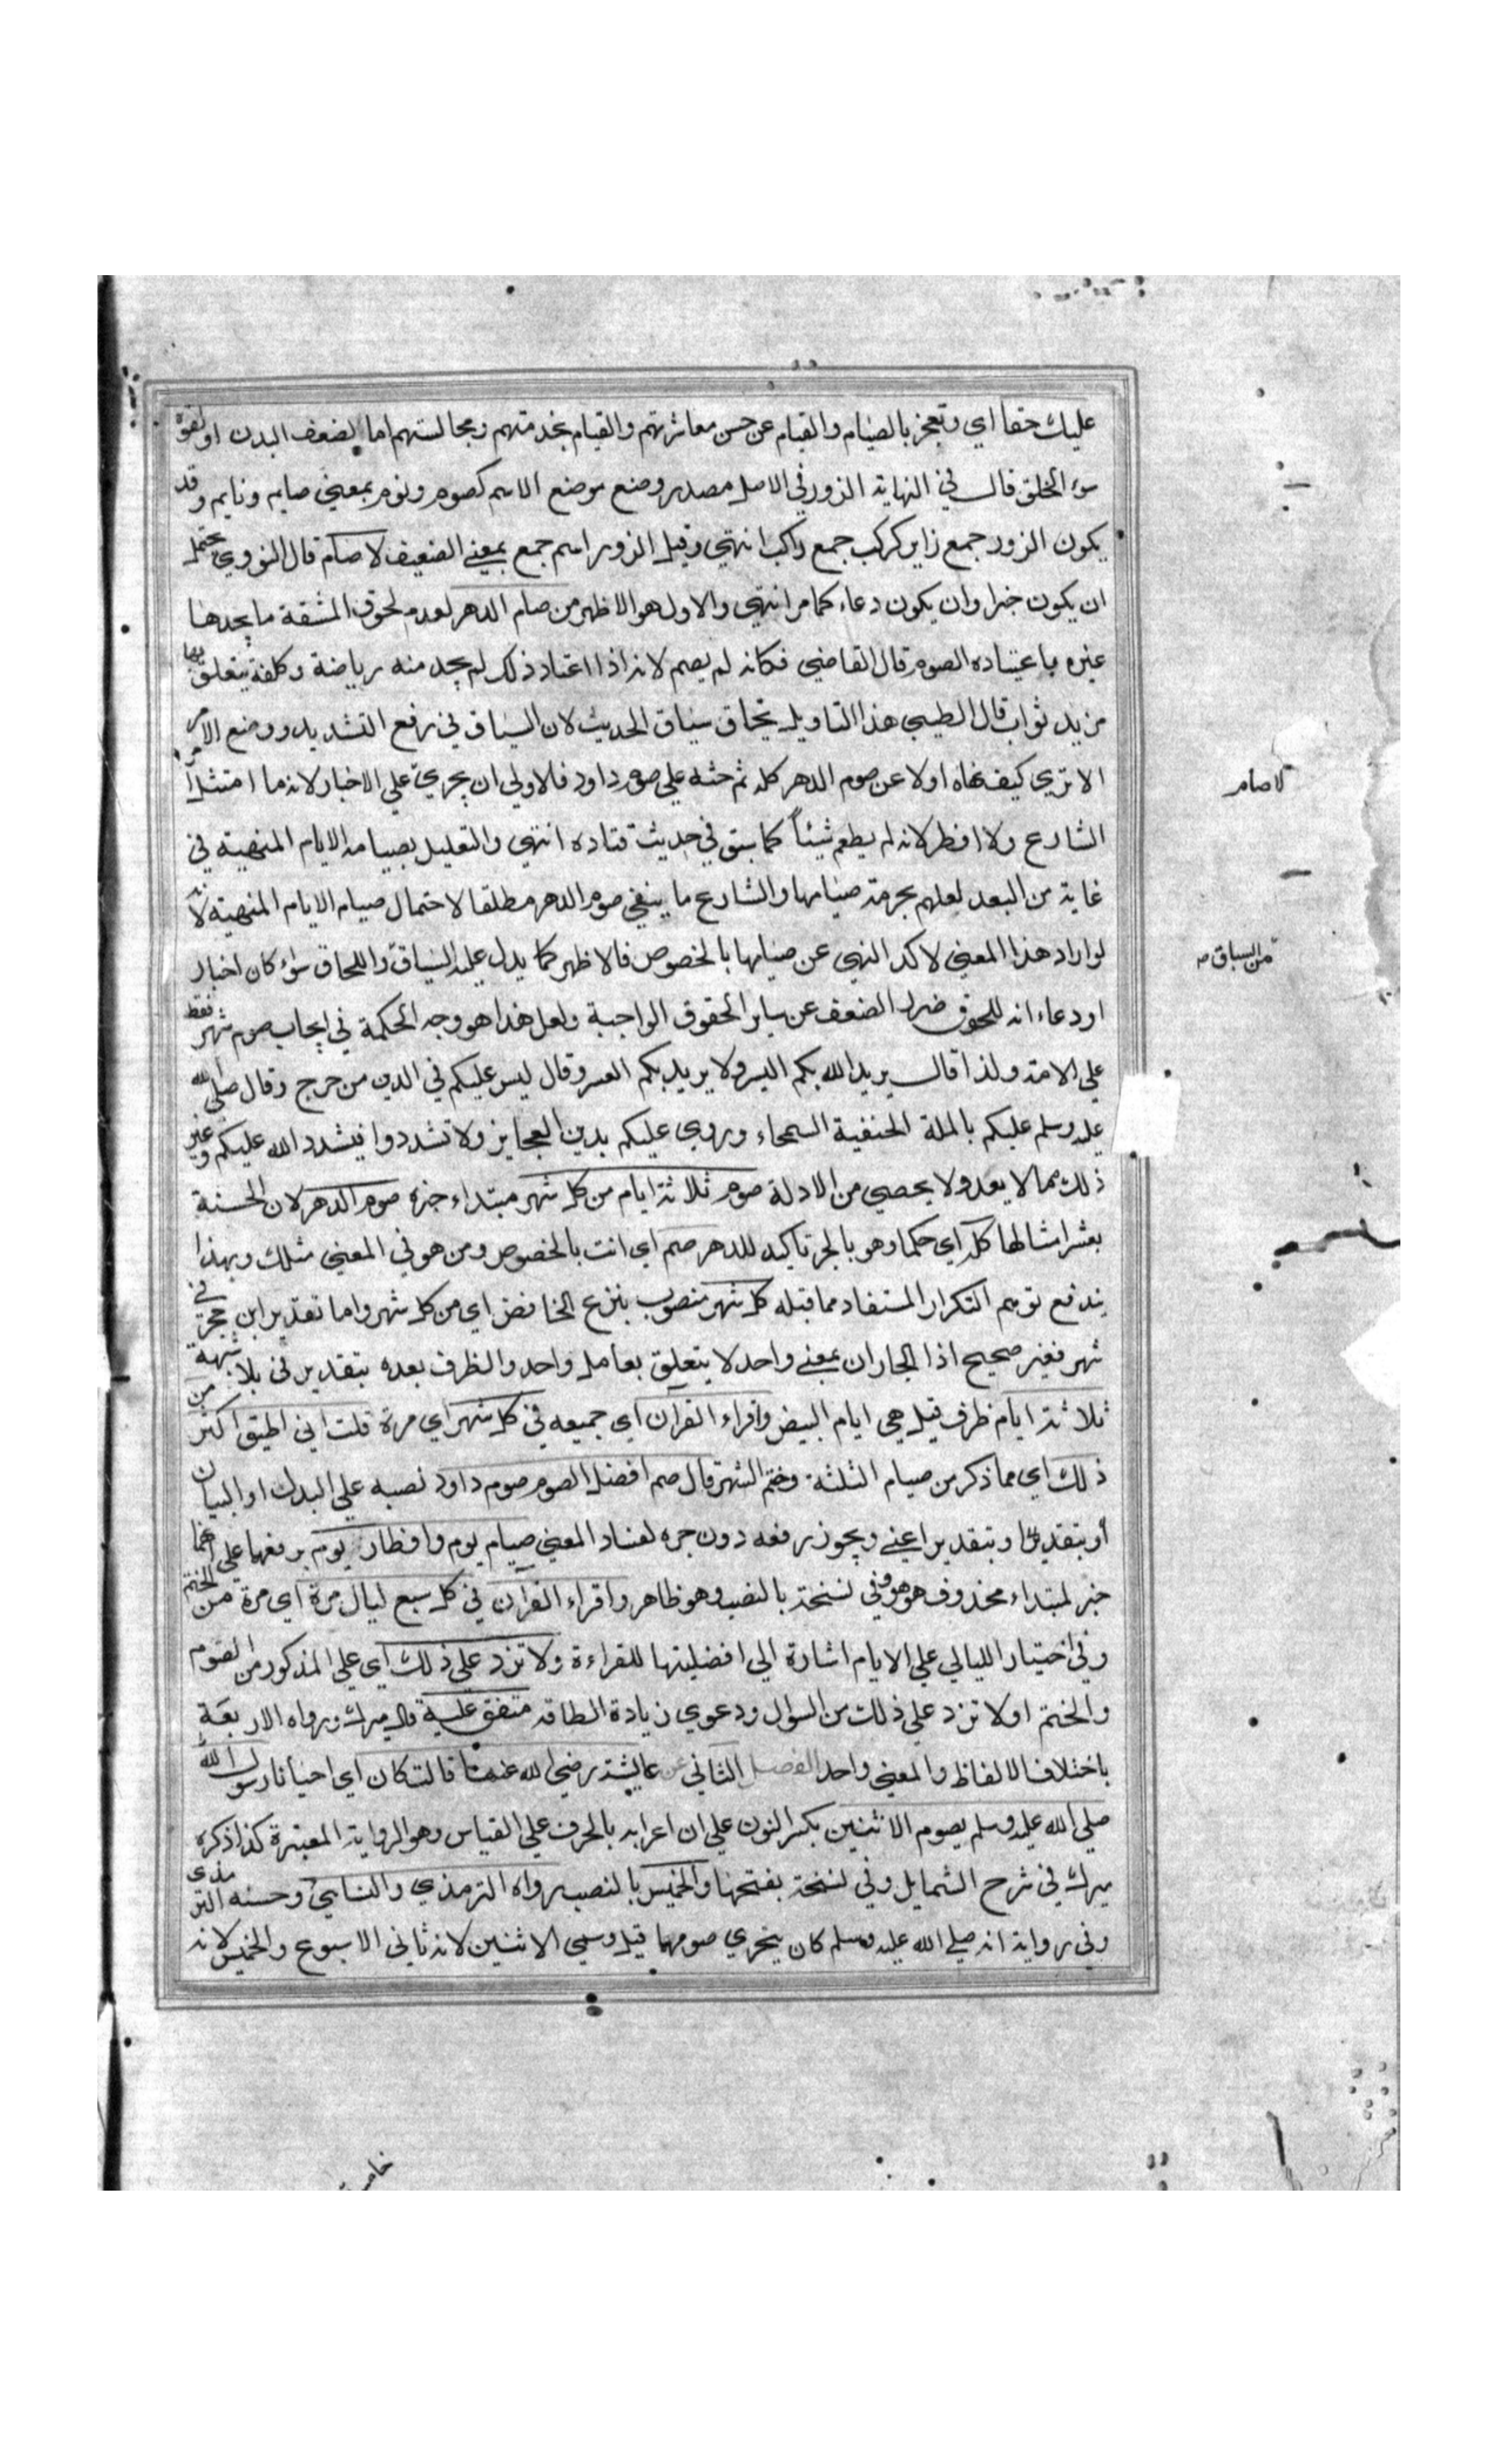 عليك حقا اي وتعجز بالصيام والقيام عن حسن معاشرتهم والقيام بخدمتهم ومجالستهم اما لضعف البدن او لقوة
سوء الخلق قال في النهاية الزور في الاصل مصدر وضع موضع الاسم كصوم ونوم بمعنى صايم ونايم وقد
يكون الزور جمع زاير كركب جمع راكب انتهي وقيل الزور اسم جمع بمعنى الضيف لا صام قال النووي يحتمل
ان يكون خبرا وان يكون دعاء كما مر انتهي والاول هو الاظهر من صام الدهر لعدم لحوق المشقة ما يجدها
غيره باعتياده الصوم قال القاضي فكانه لم يصم لانه اذا اعتاد ذلك لم يجد منه رياضة وكلفة يتعلق بها
مزيد ثواب قال الطيبي هذا التاويل يخالف سياق الحديث لان السياق في رفع التشديد ووضع الاصر
الا تري كيف نهاه اولا عن صوم الدهر كله ثم حثه علي صوم داود فالاولي ان يجري علي الاخبار لانه ما امتثل امر
الشارع ولا افطر لانه لم يطعم شيئا كما سبق في حديث قتاده انتهي والتعليل بصيامه الايام المنهية في
غاية من البعد لعلهم بحرمة صيامها والشارع ما ينفي صوم الدهر مطلقا لاحتمال صيام الايام المنهية لانه
لو اراد هذا المعنى لاكد النهي عن صيامها بالخصوص فالاظهر كما يدل عليه السياق واللحاق سواء كان اخبار
او دعاء انه للحوق ضرر الضعف عن ساير الحقوق الواجبة ولعل هذا هو وجه الحكمة في ايجاب صوم شهر فقط
علي الامة ولذا قال يريد الله بكم اليسر ولا يريد بكم العسر وقال ليس عليكم في الدين من حرج وقال صلى الله
عليه وسلم عليكم بالملة الحنفية السمحاء وروي عليكم بدين العجايز ولا تشددوا فيشدد الله عليكم وغير
ذلك مما لا يعد ولا يحصي من الادلة صوم ثلاثة ايام من كل شهر مبتداء خبره صوم الدهر لان الحسنة
بعشر امثالها كله اي حكما وهو بالجر تاكيد للدهر صم اي انت بالخصوص ومن هو في المعني مثلك وبهذا
يندفع توهم التكرار المستفاد مما قبله كل شهر منصوب بنزع الخافض اي من كل شهر واما تقدير ابن حجر في
شهر فغير صحيح اذا الجاران بمعنى واحد لا يتعلق بعامل واحد والظرف بعده بتقدير في بلا شبهة
ثلاثة ايام ظرف قيل هي ايام البيض واقراء القران اي جميعه في كل شهر اي مرة قلت اني اطيق اكثر من
ذلك اي مما ذكر من صيام الثلثة وختم الشهر قال صم افضل الصوم صوم داود نصبه علي البدل او البيان
او بتقدير اعني ويجوز رفعه دون جره لفساد المعني صيام يوم وافطار يوم برفعهما علي انهما
خبر لمبتداء محذوف هو هو وفي نسخة بالنصب وهو ظاهر واقراء القران في كل سبع ليال مرة اي مرة من الختم
وفي اختيار الليالي علي الايام اشارة الي افضليتها للقراءة ولا تزد علي ذلك اي علي المذكور من الصوم
والختم او لا تزد علي ذلك من السوال ودعوي زيادة الطاقه متفق عليه قال ميرك ورواه الاربعة
باختلاف الالفاظ والمعني واحد الفصل الثاني عن عايشة رضي الله عنها قالت كان اي احيانا رسول الله
صلي الله عليه وسلم يصوم الاثنين بكسر النون علي ان اعرابه بالحرف علي القياس وهو الرواية المعتبرة كذا ذكره
ميرك في شرح الشمايل وفي نسخة بفتحها والخميس بالنصب رواه الترمذي والنسايي وحسنه الترمذي
وفي رواية انه صلي الله عليه وسلم كان يتحري صومهما قيل وسمي الاثنين لانه ثاني الاسبوع والخميس لانه
لا صام
من السباق